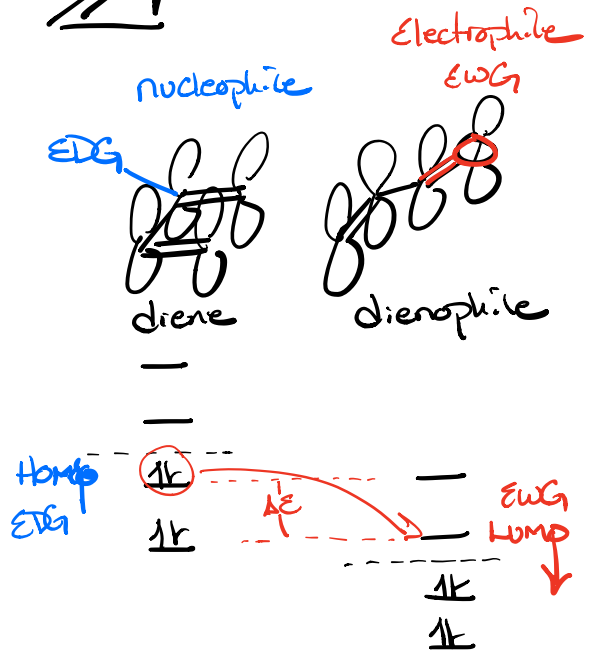 Electrophile
EWG
nucleophile
EDG
diene
dienophile
HOMO
EDG
ΔE
EWG
LUMO